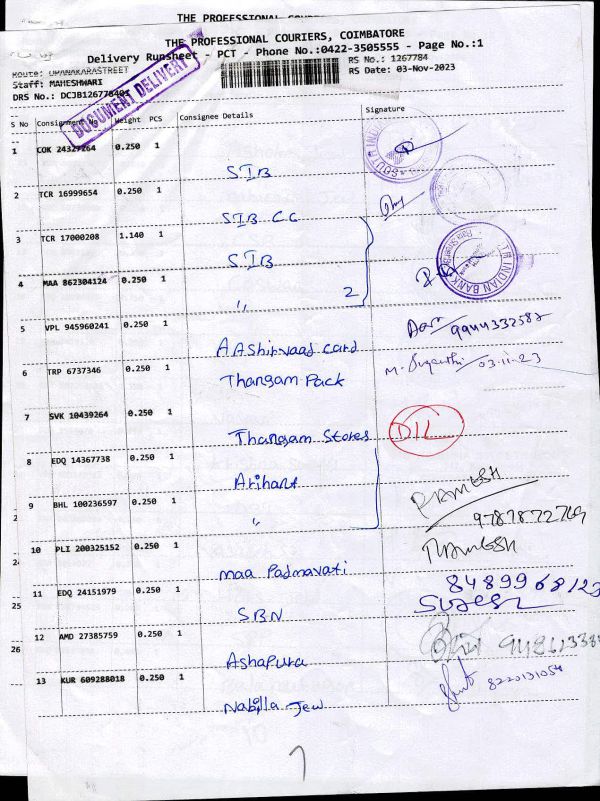 THE PROFESSIONAL COURIERS, COIMBATORE
Delivery Runsheet - PCT - Phone No.:0422-3505555 - Page No.:1
Route: UPANAKARASTREET
RS No.: 1267784
Staff: MAHESHWARI
RS Date: 03-Nov-2023
DRS No.: DCJB1267784001
DOCUMENT DELIVERY
S No Consignment No Weight PCS Consignee Details Signature
1 COK 24327264 0.250 1
SIB
2 TCR 16999654 0.250 1
SIB CC
3 TCR 17000208 1.140 1
SIB
4 MAA 862304124 0.250 1
〃 2
5 VPL 945960241 0.250 1
AAshirvaad card 9944332587
6 TRP 6737346 0.250 1
Thangam Pack M. Suganthi 03.11.23
7 SVK 10439264 0.250 1
Thangam Stores DIL
8 EDQ 14367738 0.250 1
Arihant RAMESH
9 BHL 100236597 0.250 1
〃 9787872769
10 PLI 200325152 0.250 1 RAMESH
maa Padmavati
11 EDQ 24151979 0.250 1
SBN Suresh
12 AMD 27385759 0.250 1
Ashapura
13 KUR 609288018 0.250 1 8220131054
Nabilla Jew